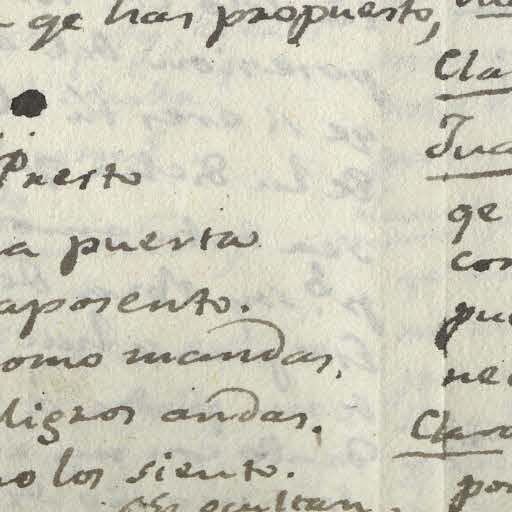 qe has propuesto,
Presto
a puerta
aposento.
como mandas,
ligros andas.
no los siento.
ocultan
Cla
Jua
qe
con
pu
ne
Clara
por